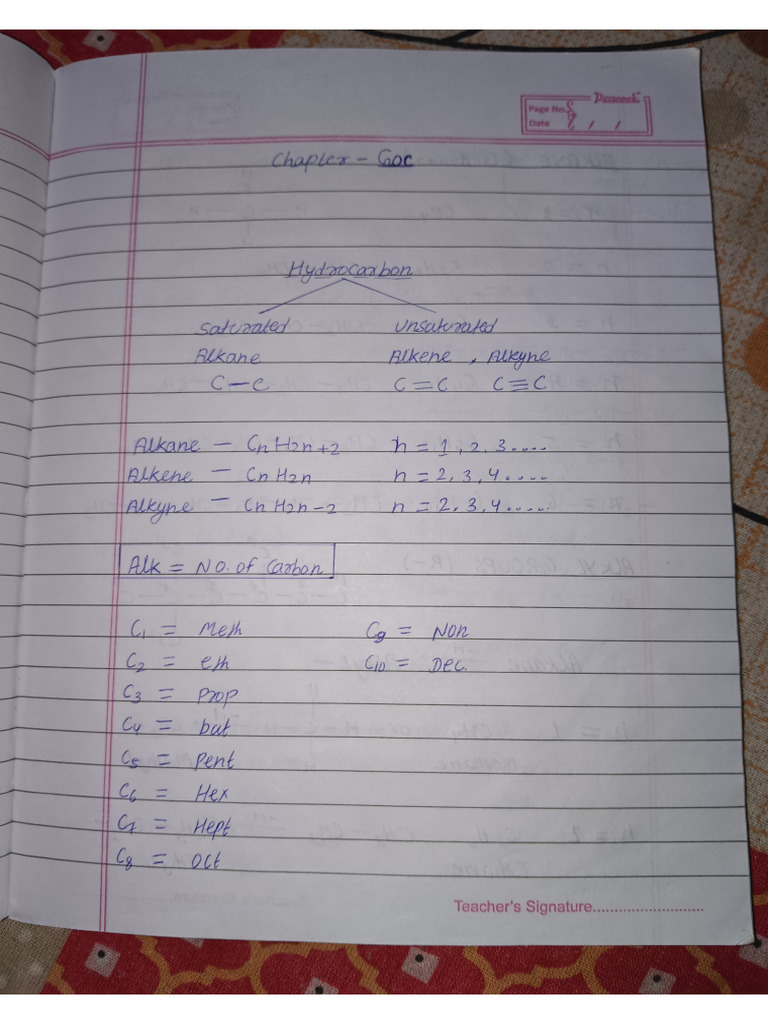 Peacock
Page No.
Date / /
Chapter - GOC
Hydrocarbon
Saturated Unsaturated
Alkane Alkene , Alkyne
C—C C=C C≡C
Alkane — CnH2n+2 n = 1, 2, 3.....
Alkene — CnH2n n = 2, 3, 4.....
Alkyne — CnH2n-2 n = 2, 3, 4.....
Alk = NO. of Carbon
C1 = Meth C9 = NON
C2 = eth C10 = Dec.
C3 = prop
C4 = but
C5 = Pent
C6 = Hex
C7 = Hept
C8 = Oct
Teacher's Signature..........................